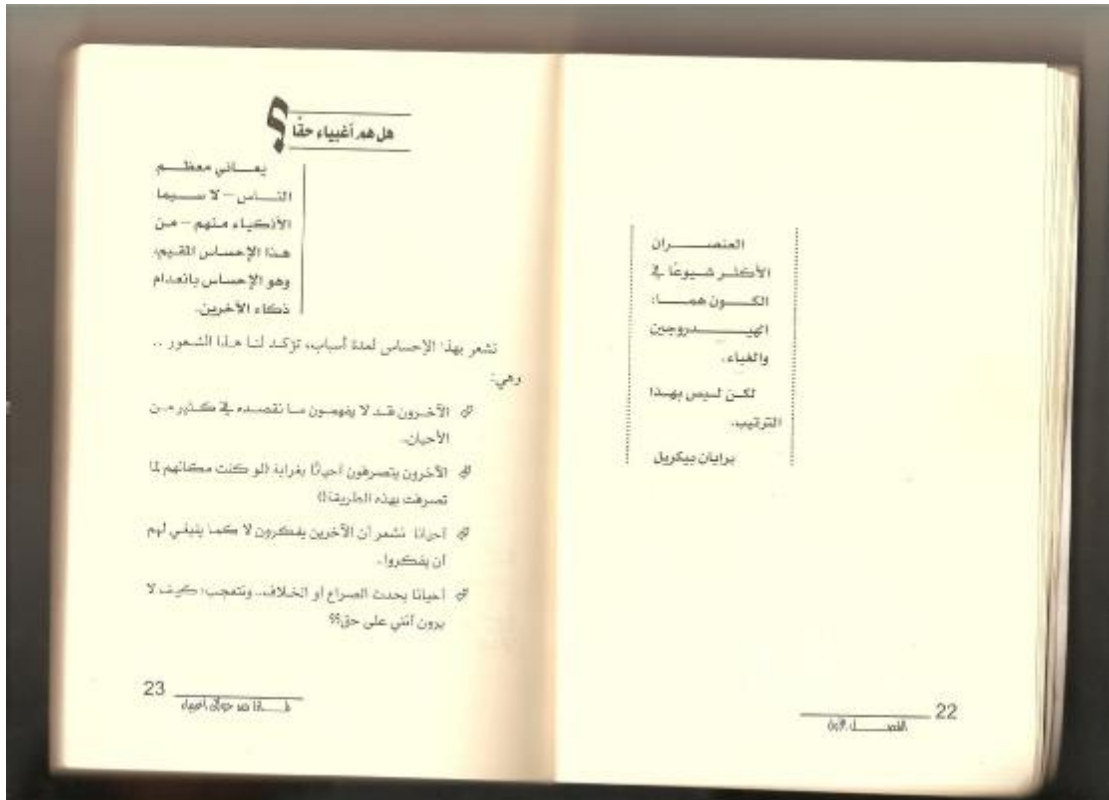 العنصــــران
الأكثر شيوعًا في
الكــون همــا:
الهيــــدروجين
والغباء.
لكن ليس بهذا
الترتيب.
برايان بيكريل
22
الفصــل الأول
هل هم أغبياء حقًا؟
يعــاني معظــم
النــاس – لا سـيما
الأذكياء منهم – من
هذا الإحساس المقيم،
وهو الإحساس بانعدام
ذكاء الآخرين.
نشعر بهذا الإحساس لعدة أسباب، تؤكد لنا هذا الشعور ..
وهي:
الآخرون قد لا يفهمون ما نقصده في كثير من
الأحيان.
الآخرون يتصرفون أحيانًا بغرابة (لو كنت مكانهم لما
تصرفت بهذه الطريقة!)
أحيانًا نشعر أن الآخرين يفكرون لا كما ينبغي لهم
أن يفكروا.
أحيانًا يحدث الصراع أو الخلاف.. ونتعجب: كيف لا
يرون أنني على حق؟؟
23
لمــاذا من حولك أغبياء